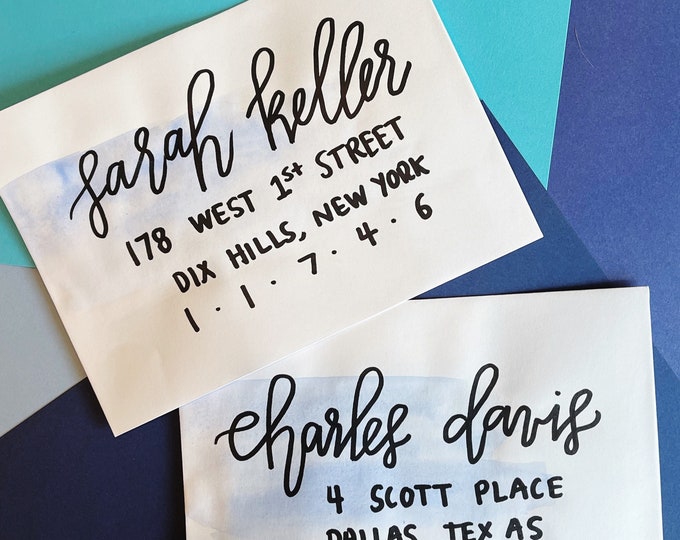 sarah keller
178 WEST 1st STREET
DIX HILLS, NEW YORK
1 · 1 · 7 · 4 · 6
charles davis
4 SCOTT PLACE
DALLAS, TEXAS